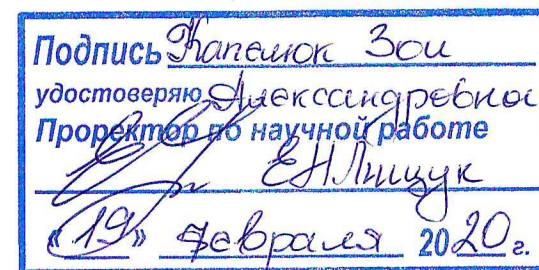 Подпись Капелюк Зои
удостоверяю Александровны
Проректор по научной работе
Е.Н.Лищук
«19» февраля 2020 г.